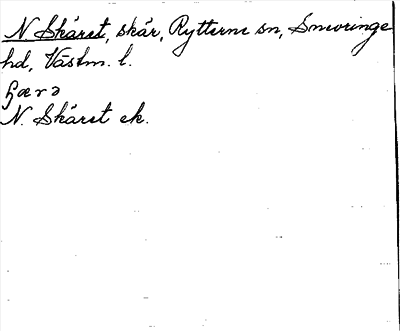 N Skäret, skär, Rytterne sn, Snevringe
hd, Västm. l.
N. Skäret ek.